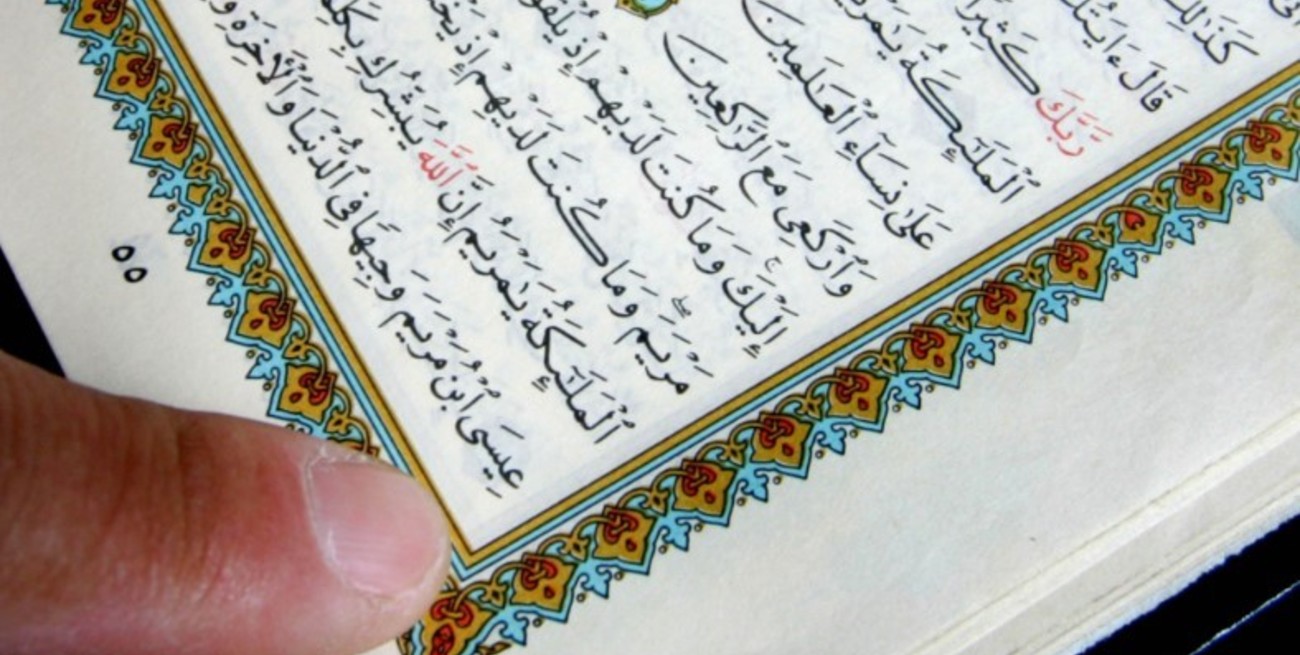 كَذَٰلِكَ
قَالَ ءَايَتُكَ
رَّبَّكَ كَثِيرًا
ٱلْمَلَٰٓئِكَةُ يَٰمَرْيَمُ
عَلَىٰ نِسَآءِ ٱلْعَٰلَمِينَ
وَٱرْكَعِى مَعَ ٱلرَّٰكِعِينَ
إِلَيْكَ ۚ وَمَا كُنتَ لَدَيْهِمْ إِذْ يُلْقُو
مَرْيَمَ ۖ وَمَا كُنتَ لَدَيْهِمْ إِذْ يَخ
ٱلْمَلَٰٓئِكَةُ يَٰمَرْيَمُ إِنَّ ٱللَّهَ يُبَشِّرُكِ بِكَلِ
عِيسَى ٱبْنُ مَرْيَمَ وَجِيهًا فِى ٱلدُّنْيَا وَٱلْءَاخِرَةِ وَ
٥٥